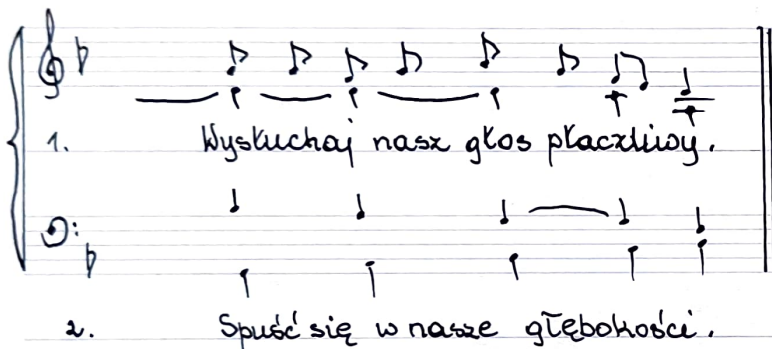 1. Wysłuchaj nasz głos płaczliwy.
2. Spuść się w nasze głębokości.